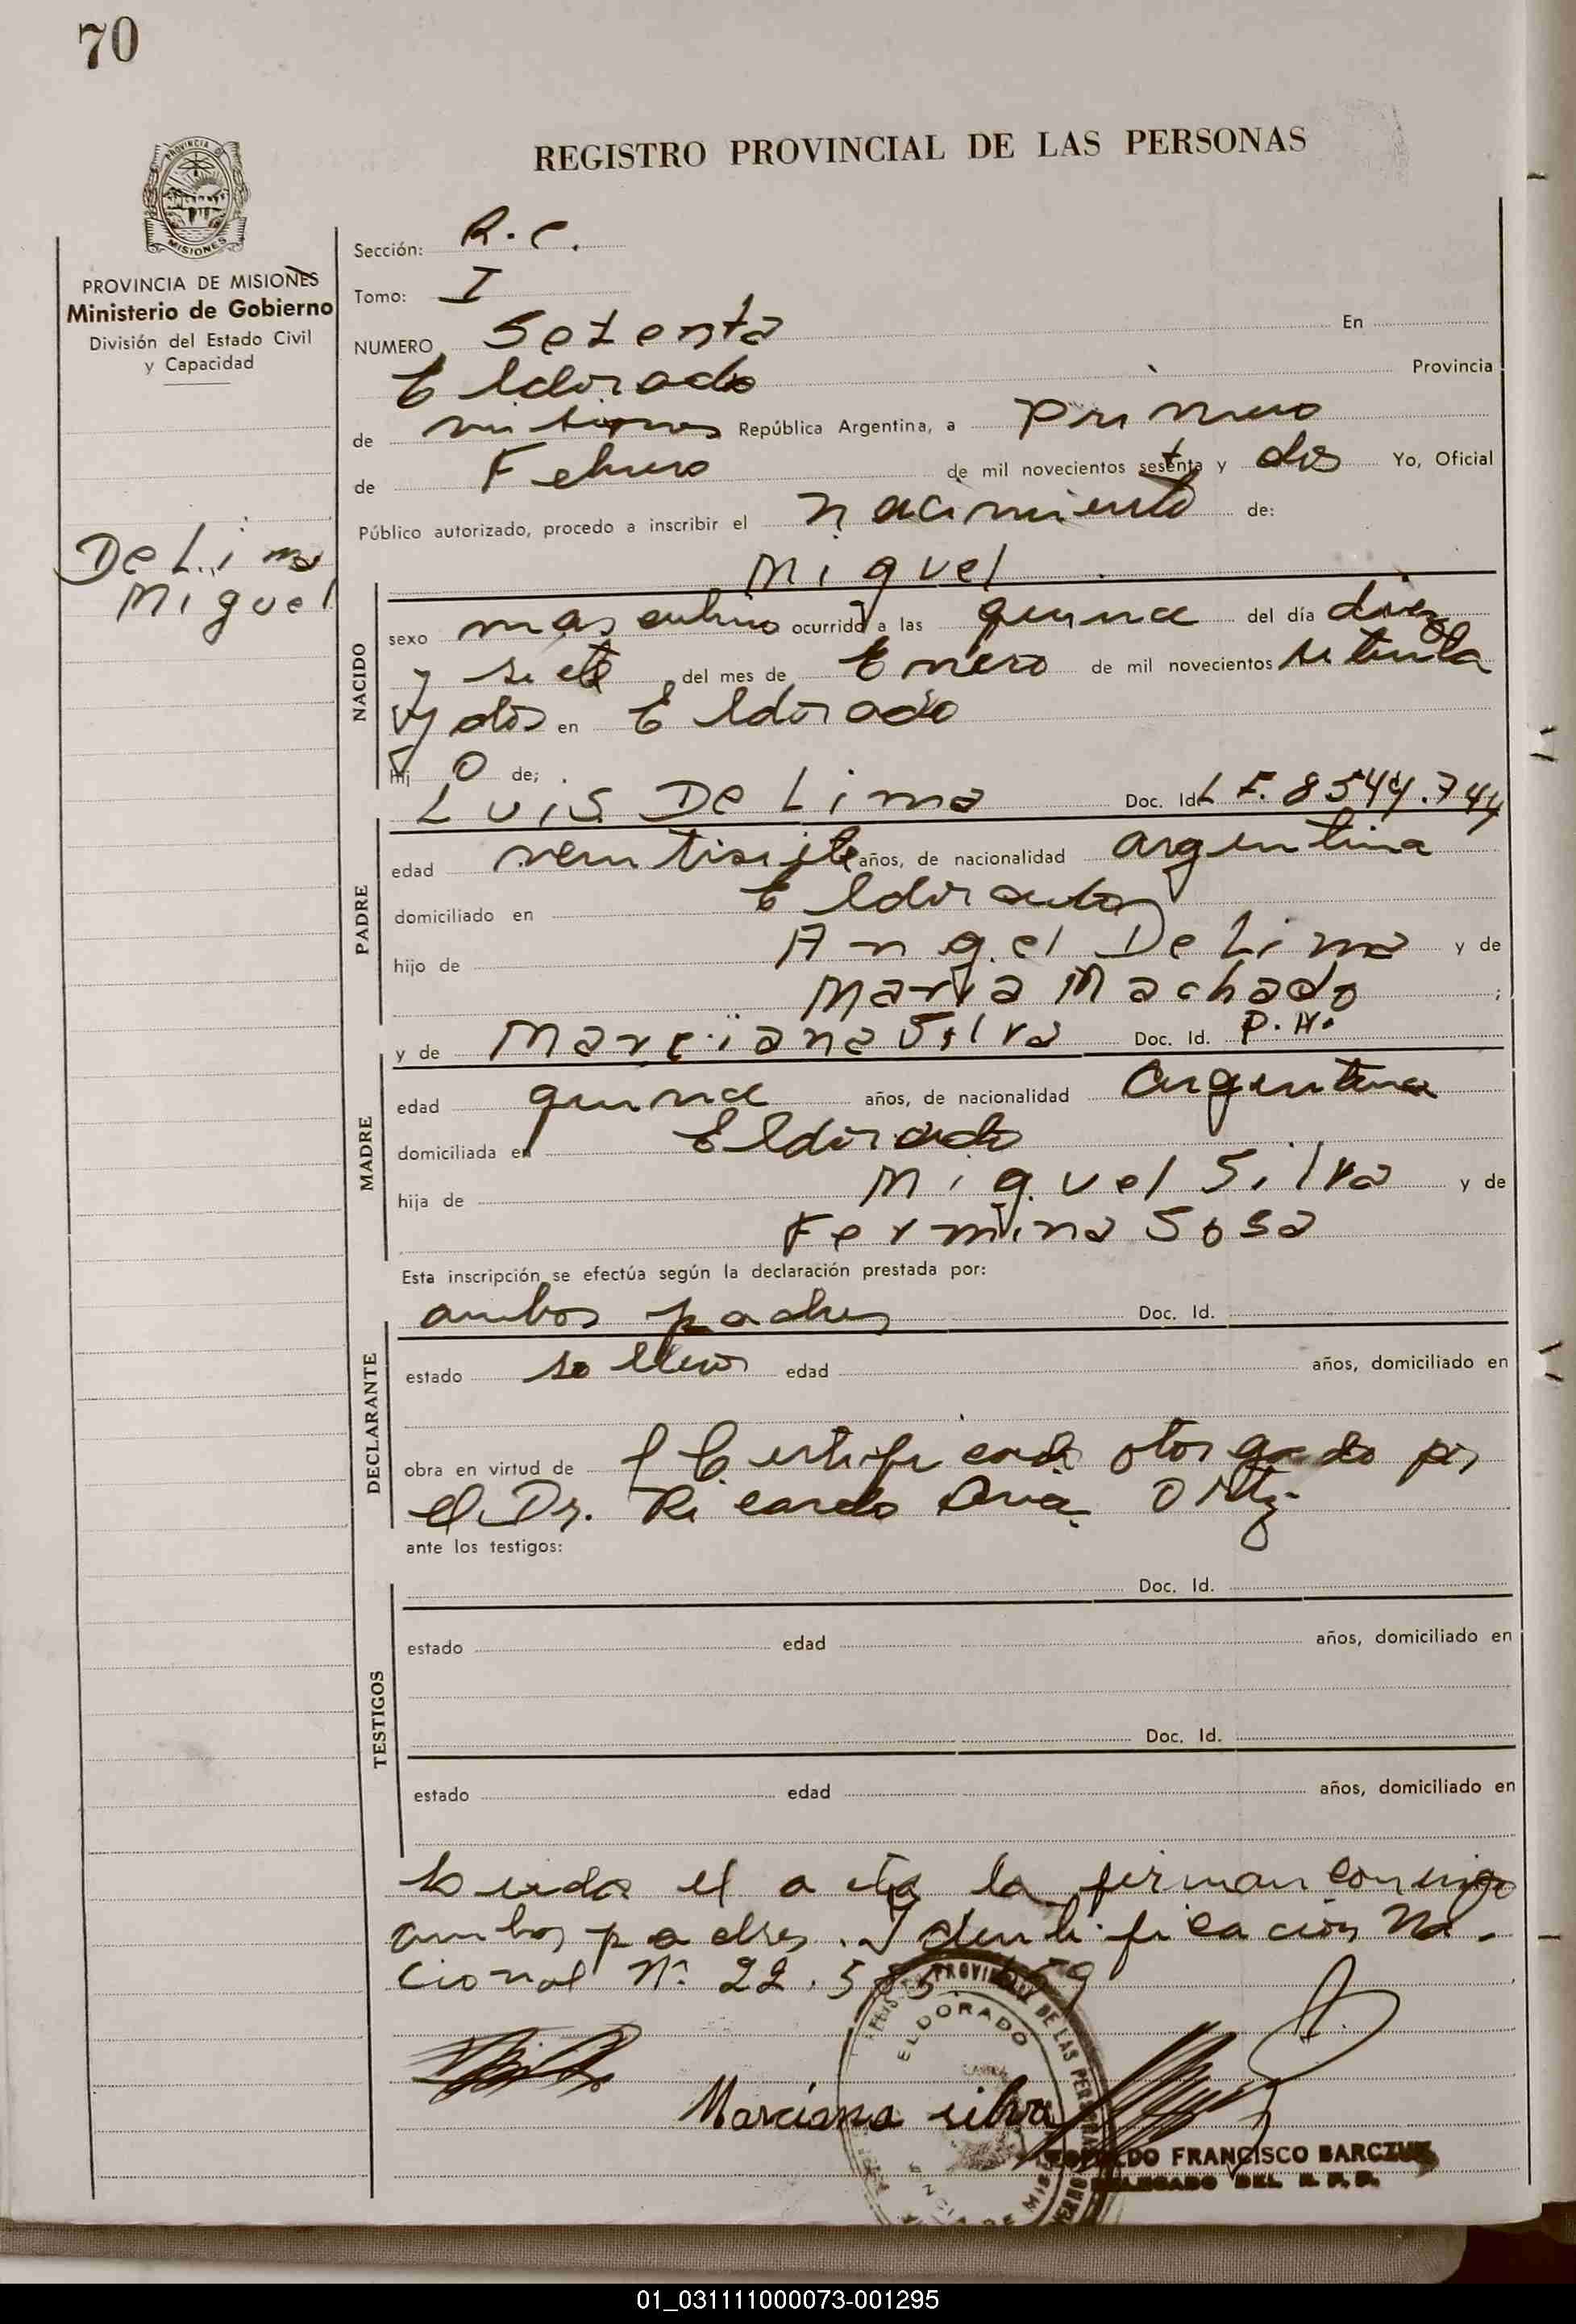 70
REGISTRO PROVINCIAL DE LAS PERSONAS
PROVINCIA DE MISIONES
Ministerio de Gobierno
División del Estado Civil
y Capacidad
De Lima
Miguel
Sección: R.C.
Tomo: I
NUMERO Setenta En
Eldorado Provincia
de misiones República Argentina, a primero
de Febrero de mil novecientos setenta y dos Yo, Oficial
Público autorizado, procedo a inscribir el nacimiento de:
Miguel
NACIDO
sexo masculino ocurrido a las quince del día diez
y siete del mes de Enero de mil novecientos setenta
y dos en Eldorado
hij o de;
Luis De Lima Doc. Id. L E. 8544.744
PADRE
edad veintisiete años, de nacionalidad argentina
domiciliado en Eldorado
hijo de Angel De Lima y de
Maria Machado ;
y de Marciana Silva Doc. Id. P.H.
MADRE
edad quince años, de nacionalidad Argentina
domiciliada en Eldorado
hija de Miguel Silva y de
Fermina Sosa
Esta inscripción se efectúa según la declaración prestada por:
ambos padres Doc. Id.
DECLARANTE
estado solteros edad años, domiciliado en
obra en virtud de Certificado otorgado por
el Dr. Ricardo Ortiz
ante los testigos:
Doc. Id.
TESTIGOS
estado edad años, domiciliado en
Doc. Id.
estado edad años, domiciliado en
Leida el acta la firman conmigo
ambos padres. Identificación Na-
cional Nº 22.
ELDORADO
Marciana silva
FRANCISCO BARCZUK
DELEGADO DEL R. P. P.
01_031111000073-001295